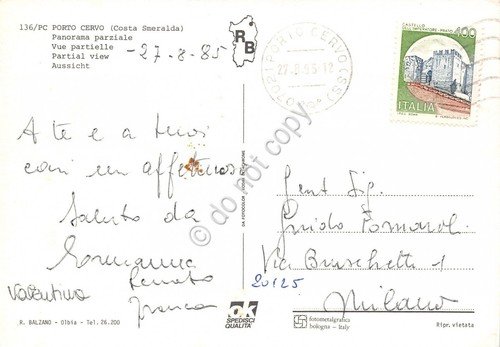 136/PC PORTO CERVO (Costa Smeralda)
Panorama parziale
Vue partielle
Partial view
Aussicht
-27-8-85
RB
PORTO CERVO (SS)
07020
CASTELLO
DELL'IMPERATORE - PRATO
400
ITALIA
A te e a tuoi
cari un affettuoso
saluto da
Ermanna
Renato
Franca
Valentina
Gent Sig.
Guido Pomarol
Via Bruschetti 1
20125
Milano
do not copy
R. BALZANO - Olbia - Tel. 26.200
OK
SPEDISCI
QUALITA'
fotometalgrafica
bologna - italy
Ripr. vietata